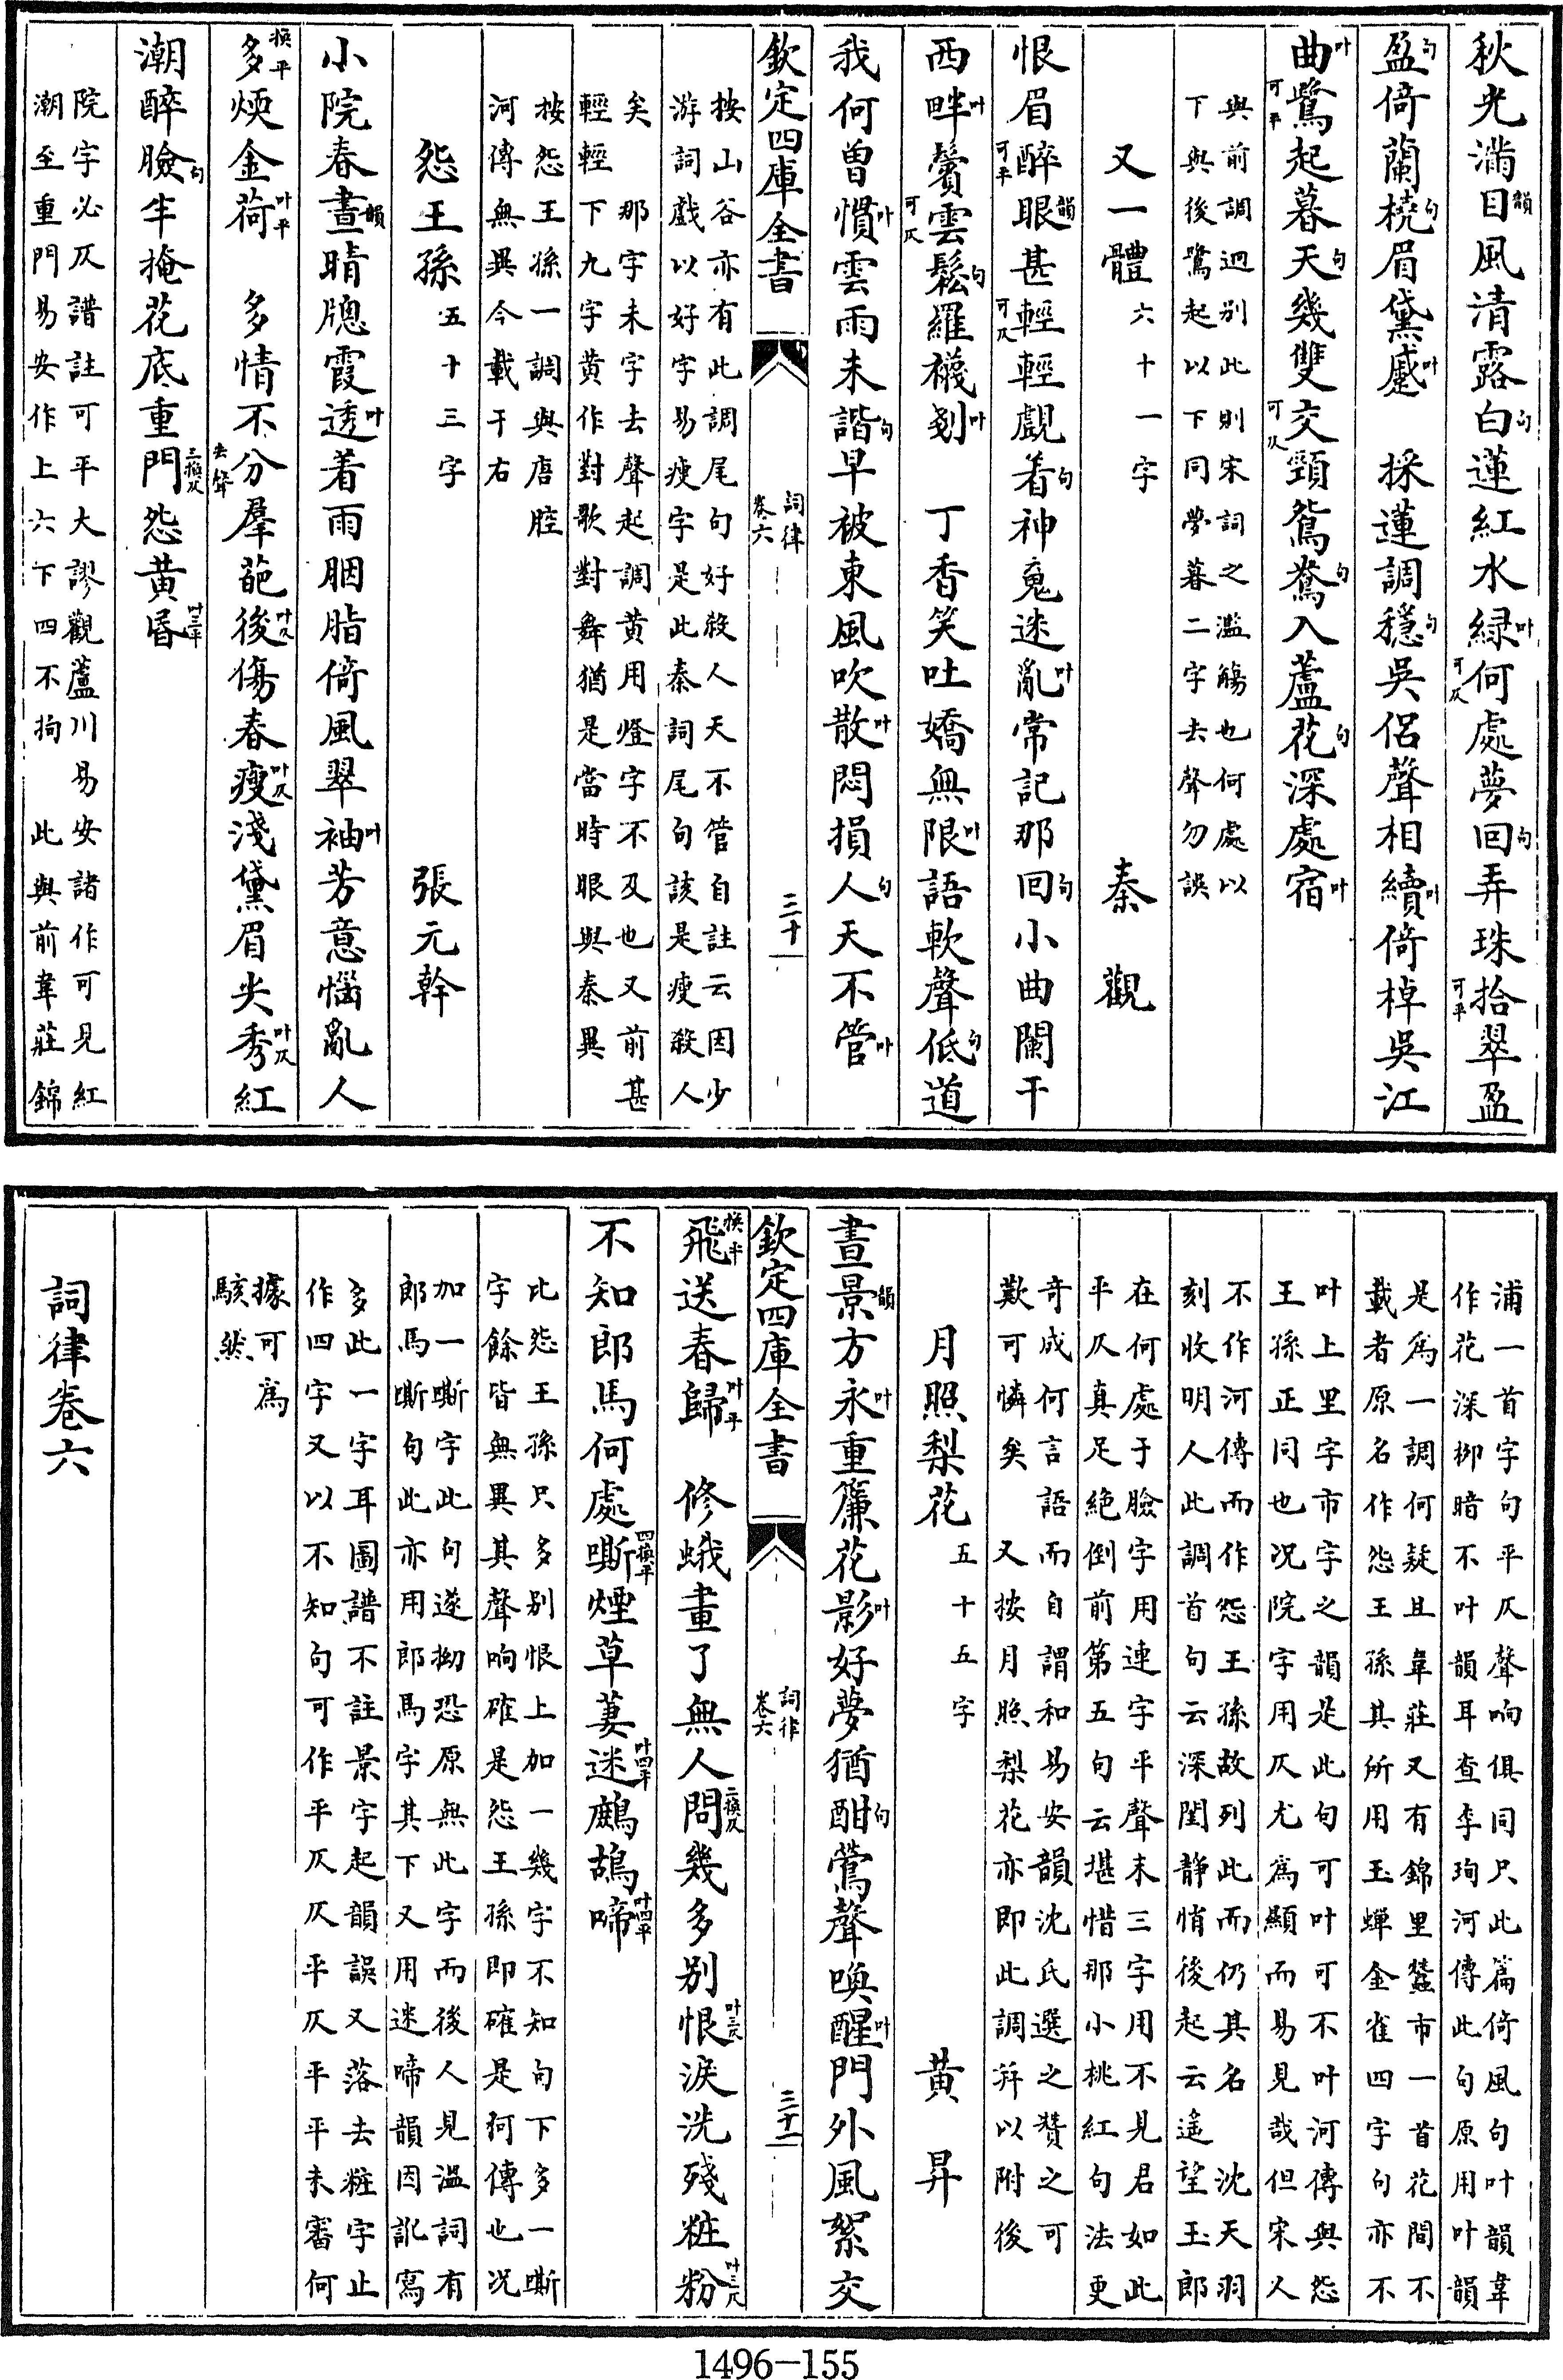 秋光滿目韻風清露白句蓮紅水緑叶何可仄處夢回句弄珠拾可平翠盈
盈句倚蘭橈句眉黛蹙叶 採蓮調穩句吳侶聲相續叶倚棹吳江
曲叶鷺可平起暮天句幾雙交可仄頸鴛鴦句入蘆花句深處宿叶
與前調迥别此則宋詞之濫觴也何處以
下與後鷺起以下同夢暮二字去聲勿誤
又一體六十一字 秦觀
恨眉醉可平眼韻甚輕可仄輕覷着句神魂迷亂叶常記那回句小曲闌干
西畔叶鬢雲可仄鬆句羅襪剗叶 丁香笑吐嬌無限叶語軟聲低句道
我何曽慣叶雲雨未諧句早被東風吹散叶悶損人句天不管叶
欽定四庫全書 詞律卷六 三十
按山谷亦有此調尾句好殺人天不管自註云因少
游詞戲以好字易瘦字是此秦詞尾句該是瘦殺人
矣 那字未字去聲起調黄用燈字不及也又前甚
輕輕下九字黄作對歌對舞猶是當時眼與秦異
按怨王孫一調與唐腔
河傳無異今載于右
怨王孫五十三字 張元幹
小院春晝韻晴牕霞透叶着雨胭脂倚風翠袖叶芳意惱亂人
多換平煗金荷叶平 多情不分去聲羣葩後叶仄傷春瘦叶仄淺黛眉尖秀叶仄紅
潮醉臉句半掩花底重門三換仄怨黄昏叶三平
院字必仄譜註可平大謬觀蘆川易安諸作可見紅
潮至重門易安作上六下四不拘 此與前韋莊錦
浦一首字句平仄聲响俱同只此篇倚風句叶韻韋
作花深柳暗不叶韻耳查李珣河傳此句原用叶韻
是為一調何疑且韋莊又有錦里蠶市一首花間不
載者原名作怨王孫其所用玉蟬金雀四字句亦不
叶上里字市字之韻是此句可叶可不叶河傳與怨
王孫正同也况院字用仄尤為顯而易見哉但宋人
不作河傳而作怨王孫故列此而仍其名 沈天羽
刻收明人此調首句云深閨静悄後起云遙望玉郎
在何處于臉字用連字平聲末三字用不見君如此
平仄真足絶倒前第五句云堪惜那小桃紅句法更
奇成何言語而自謂和易安韻沈氏選之贊之可
歎可憐矣 又按月照梨花亦即此調并以附後
月照梨花五十五字 黄昇
晝景韻方永叶重簾花影叶好夢猶酣句鶯聲喚醒叶門外風絮交
欽定四庫全書 詞律卷六 三十一
飛換平送春歸叶平 修蛾畫了無人問三換仄幾多别恨叶三仄淚洗殘粧粉叶三仄
不知郎馬何處嘶四換平煙草萋迷叶四平鷓鴣啼叶四平
比怨王孫只多别恨上加一幾字不知句下多一嘶
字餘皆無異其聲响確是怨王孫即確是河傳也况
加一嘶字此句遂拗恐原無此字而後人見温詞有
郎馬嘶句此亦用郎馬字其下又用迷啼韻因訛寫
多此一字耳圖譜不註景字起韻誤又落去粧字止
作四字又以不知句可作平仄仄平仄平平未審何
據可為
駭然
詞律卷六
1496-155